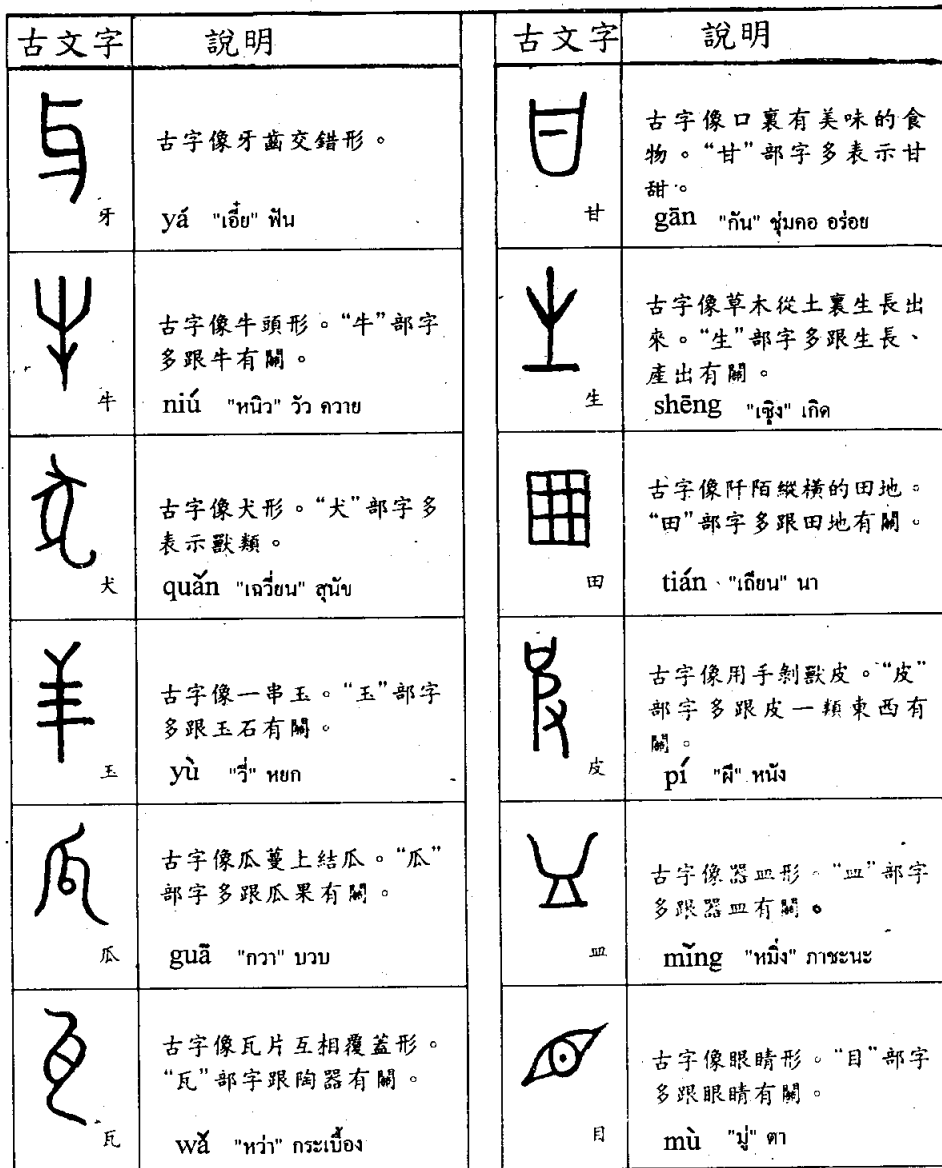 古文字 說明
牙
古字像牙齒交錯形。
yá "เอี๋ย" ฟัน
牛
古字像牛頭形。“牛”部字
多跟牛有關。
niú "หนิว" วัว ควาย
犬
古字像犬形。“犬”部字多
表示獸類。
quǎn "เฉวี่ยน" สุนัข
玉
古字像一串玉。“玉”部字
多跟玉石有關。
yù "วี่" หยก
瓜
古字像瓜蔓上結瓜。“瓜”
部字多跟瓜果有關。
guā "กวา" บวบ
瓦
古字像瓦片互相覆蓋形。
“瓦”部字跟陶器有關。
wǎ "หว่า" กระเบื้อง
古文字 說明
甘
古字像口裏有美味的食
物。“甘”部字多表示甘
甜。
gān "กัน" ชุ่มคอ อร่อย
生
古字像草木從土裏生長出
來。“生”部字多跟生長、
產出有關。
shēng "เซิง" เกิด
田
古字像阡陌縱橫的田地。
“田”部字多跟田地有關。
tián "เถียน" นา
皮
古字像用手剝獸皮。“皮”
部字多跟皮一類東西有
關。
pí "ผี" หนัง
皿
古字像器皿形。“皿”部字
多跟器皿有關。
mǐng "หมิ่ง" ภาชะนะ
目
古字像眼睛形。“目”部字
多跟眼睛有關。
mù "มู่" ตา